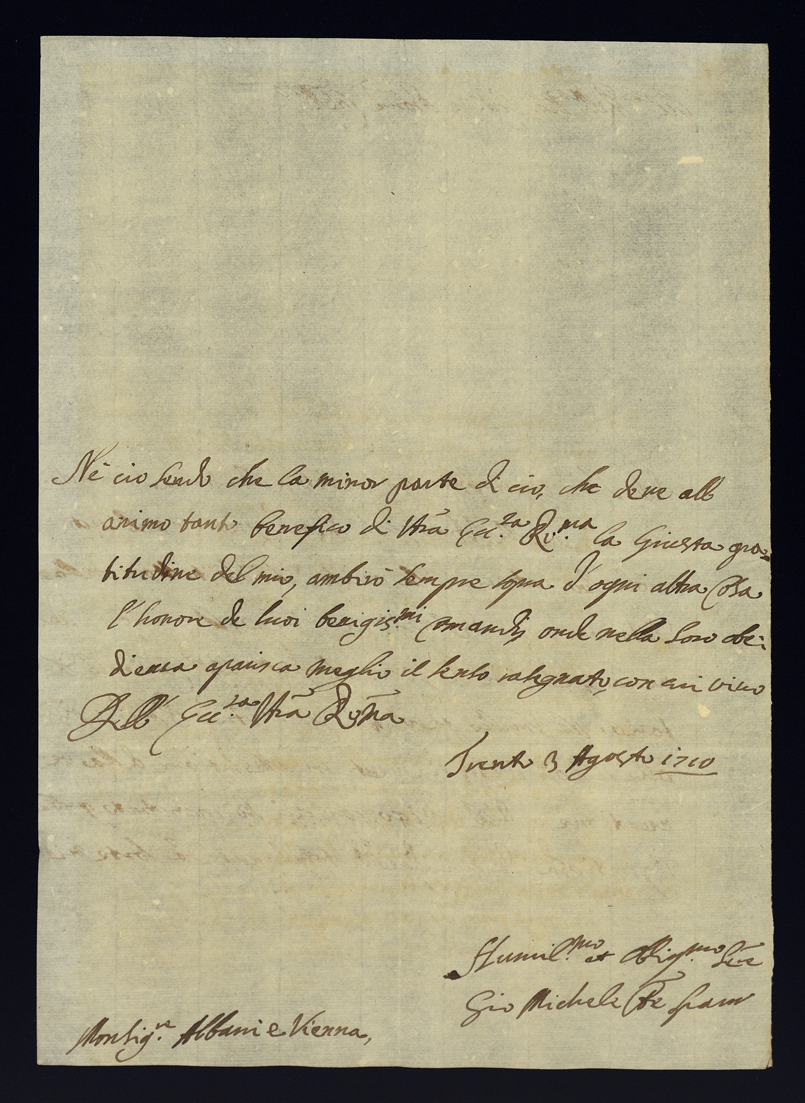 Nè ciò sendo che la minor parte di ciò, che deve all
animo tanto benefico di Vrã Ecc.za R.ma la giusta gra-
titudine del mio, ambirò sempre sopra d'ogni altra cosa
l'honore de suoi benigis.mi comandi, onde nella loro obe-
dienza aparisca meglio il sento rasegnato, con cui vivo
Dell' Ecc.za Vrã R.ma
Trento 3 Agosto 1710
Humil.mo et Oblig.mo Ser.e
Gio Michele Co: Spaur
Monsig.re Albani e Vienna,